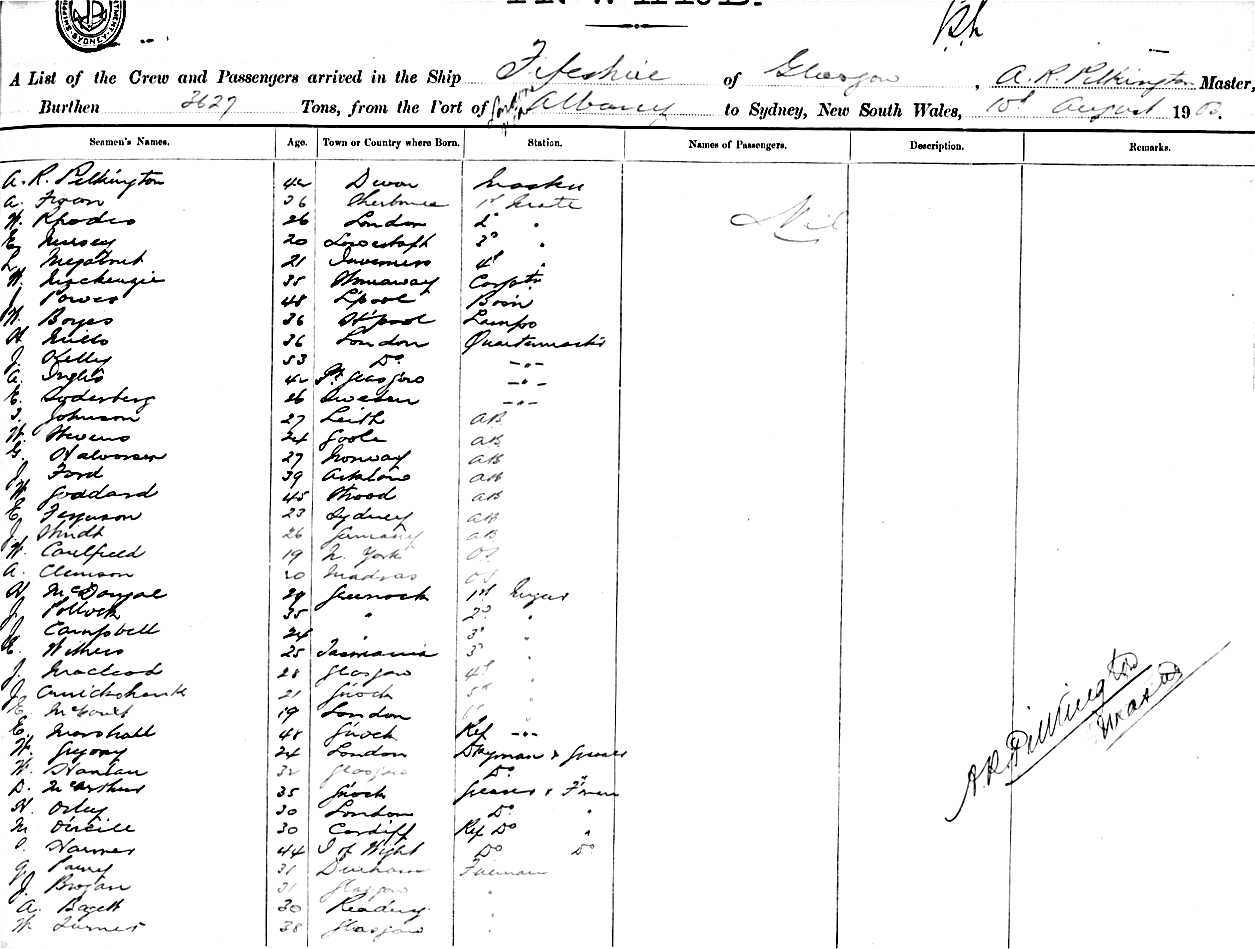 SYDNEY
A List of the Crew and Passengers arrived in the Ship Fifeshire of Glasgow, A. R. Pilkington Master,
Burthen 3627 Tons, from the Port of London via Albany to Sydney, New South Wales, 10th August 190
Seamen's Names. Age. Town or Country where Born. Station. Names of Passengers. Description. Remarks.
A. R. Pilkington 42 Devon Master
A. 36 Sherborne 1st Mate Nil
W. Rhodes 26 London 2d "
E. Nursey 20 Lowestoft 3d "
21 Inverness 4th "
W. Mackenzie 35 Stornaway Carptr
J. Power 48 L'pool Bos'n
W. Boyes 36 H'pool Lamps
H. Mills 36 London Quartermaster
J. Kelly 53 Do — " —
A. Inglis 42 Pt Glasgow — " —
E. Soderberg 26 Sweden — " —
T. Johnson 27 Leith AB
W. Stevens 24 Goole AB
G. Halvorsen 27 Norway AB
J. Ford 39 Arklow AB
W. Goddard 45 Strood AB
E. Ferguson 23 Sydney AB
J. 26 Germany AB
W. Caulfield 19 N. York OS
A. Clemson 20 Madras OS
N. McDougal 29 Greenock 1st Engeer
J. Pollock 35 " 2d "
J. Campbell 24 " 3d "
E. Withers 25 Tasmania 3d "
J. Macleod 28 Glasgow 4th "
J. Cruickshank 21 G'nock 5th "
E. 19 London "
E. Marshall 48 G'nock Ref — " —
W. Gregory 24 London D'keyman & Greaser
W. Hanlan 32 Glasgow Do
D. McArthur 35 G'nock Greaser & F'man
H. 30 London Do "
M. O'Neill 30 Cardiff Ref Do "
Harmer 44 I of Wight Do Do
G. 31 Durham Fireman
J. Brogan 31 Glasgow "
A. Bagett 30 Reading "
W. Turner 38 Glasgow "
A R Pilkington
Master